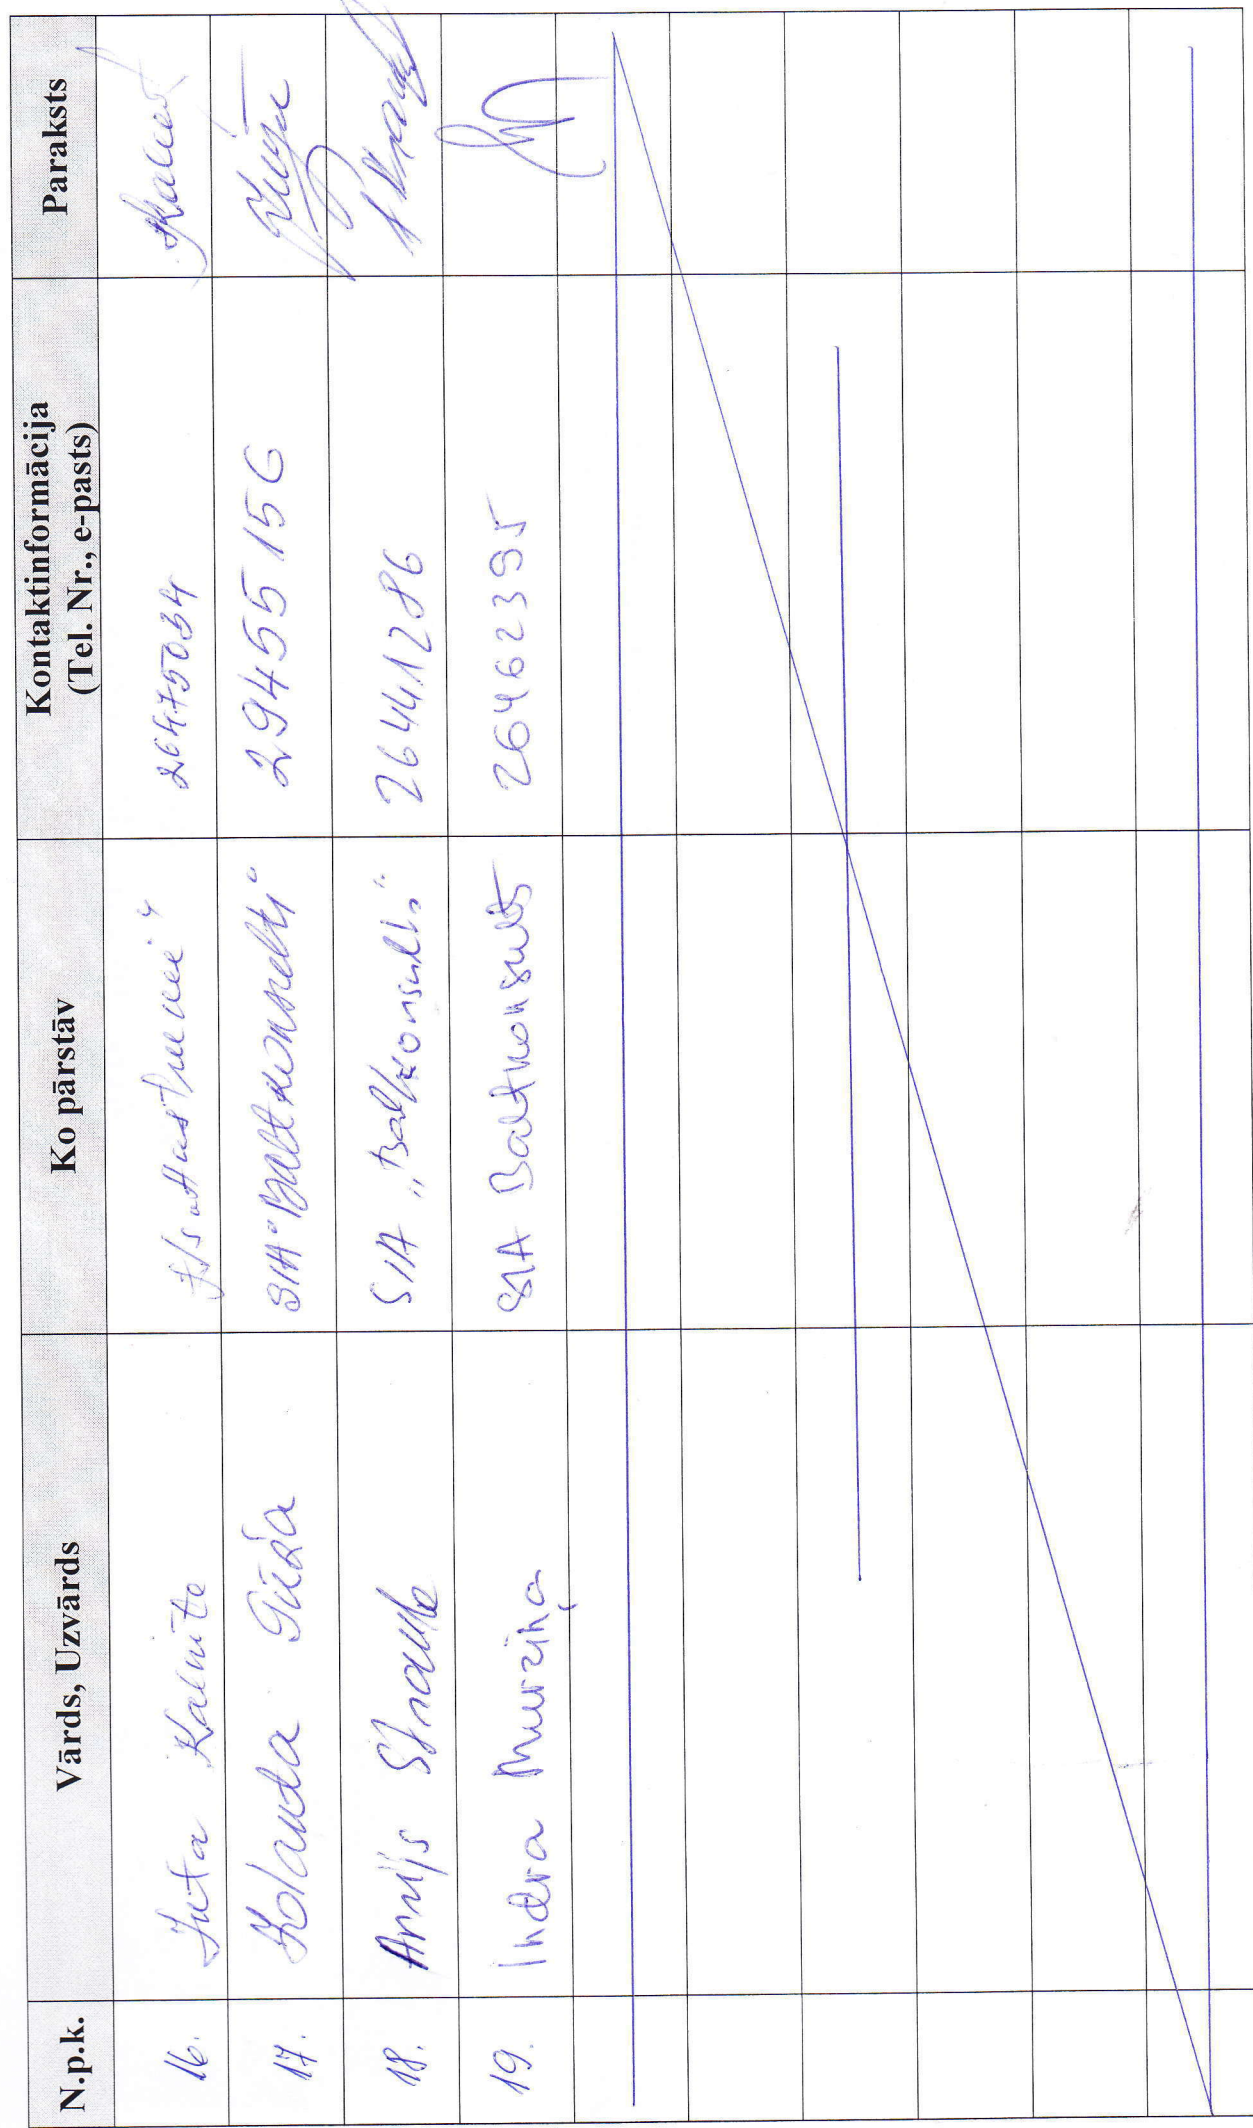 N.p.k. Vārds, Uzvārds Ko pārstāv Kontaktinformācija (Tel. Nr., e-pasts) Paraksts
16. Juta Kalnite 26475034
17. Jolanda Gūža SIA "Baltkonsults" 29455156
18. Arnijs Straule SIA „Baltkonsults" 26441286
19. Indra Murziņa SIA Baltkonsults 26462395